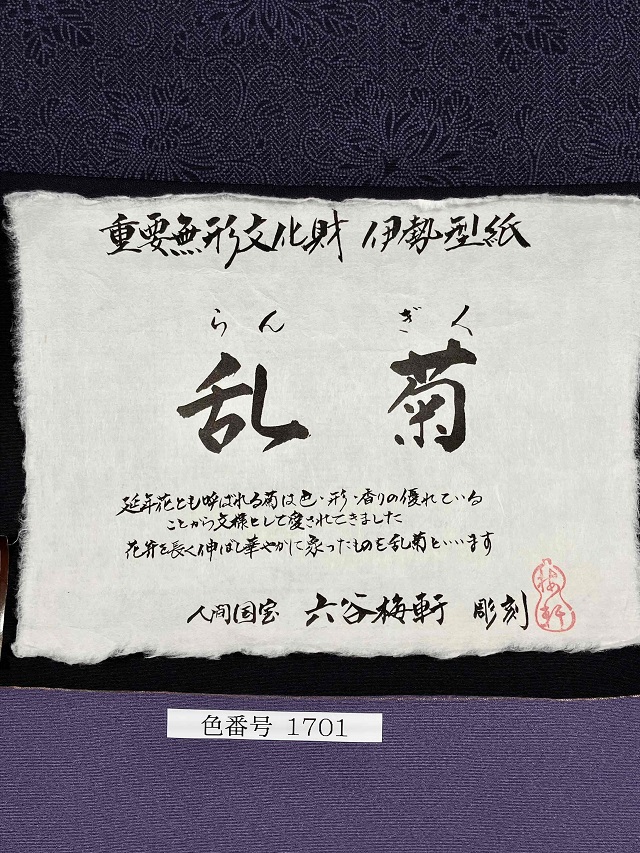 重要無形文化財 伊勢型紙
らん ぎく
乱菊
延年花とも呼ばれる菊は色・形・香りの優れている
ことから文様として愛されてきました
花弁を長く伸ばし華やかに象ったものを乱菊といいます
人間国宝 六谷梅軒 彫刻
梅軒
色番号 1701